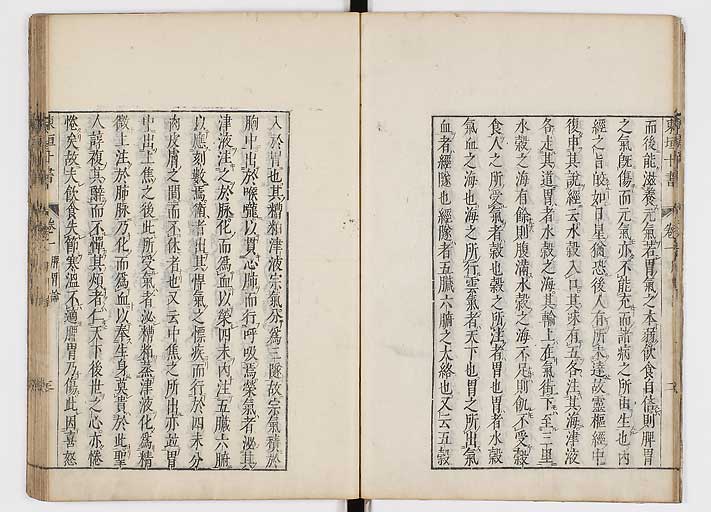 而後能滋養元氣若胃氣之本弱飲食自倍則脾胃
之氣既傷而元氣亦不能充而諸病之所由生也內
經之旨皎如日星猶恐後人有所未達故靈樞經中
復申其說經云水穀入口其味有五各注其海津液
各走其道胃者水穀之海其輸上在氣街下至三里
水穀之海有餘則腹滿水穀之海不足則飢不受穀
食人之所受氣者穀也穀之所注者胃也胃者水穀
氣血之海也海之所行雲氣者天下也胃之所出氣
血者經隧也經隧者五臟六腑之大絡也又云五穀
東垣十書
卷一
入於胃也其糟粕津液宗氣分爲三隧故宗氣積於
胸中出於喉嚨以貫心肺而行呼吸焉榮氣者泌其
津液注之於脉化而爲血以榮四末內注五臟六腑
以應刻數焉衛者出其悍氣之慓疾而行於四末分
肉皮膚之間而不休者也又云中焦之所出亦並胃
中出上焦之後此所受氣者泌糟粕蒸津液化爲精
微上注於肺脉乃化而爲血以奉生身莫貴於此聖
人諄複其辭而不憚其煩者仁天下後世之心亦惓
惓矣故夫飲食失節寒溫不適脾胃乃傷此因喜怒
東垣十書
卷一
脾胃論